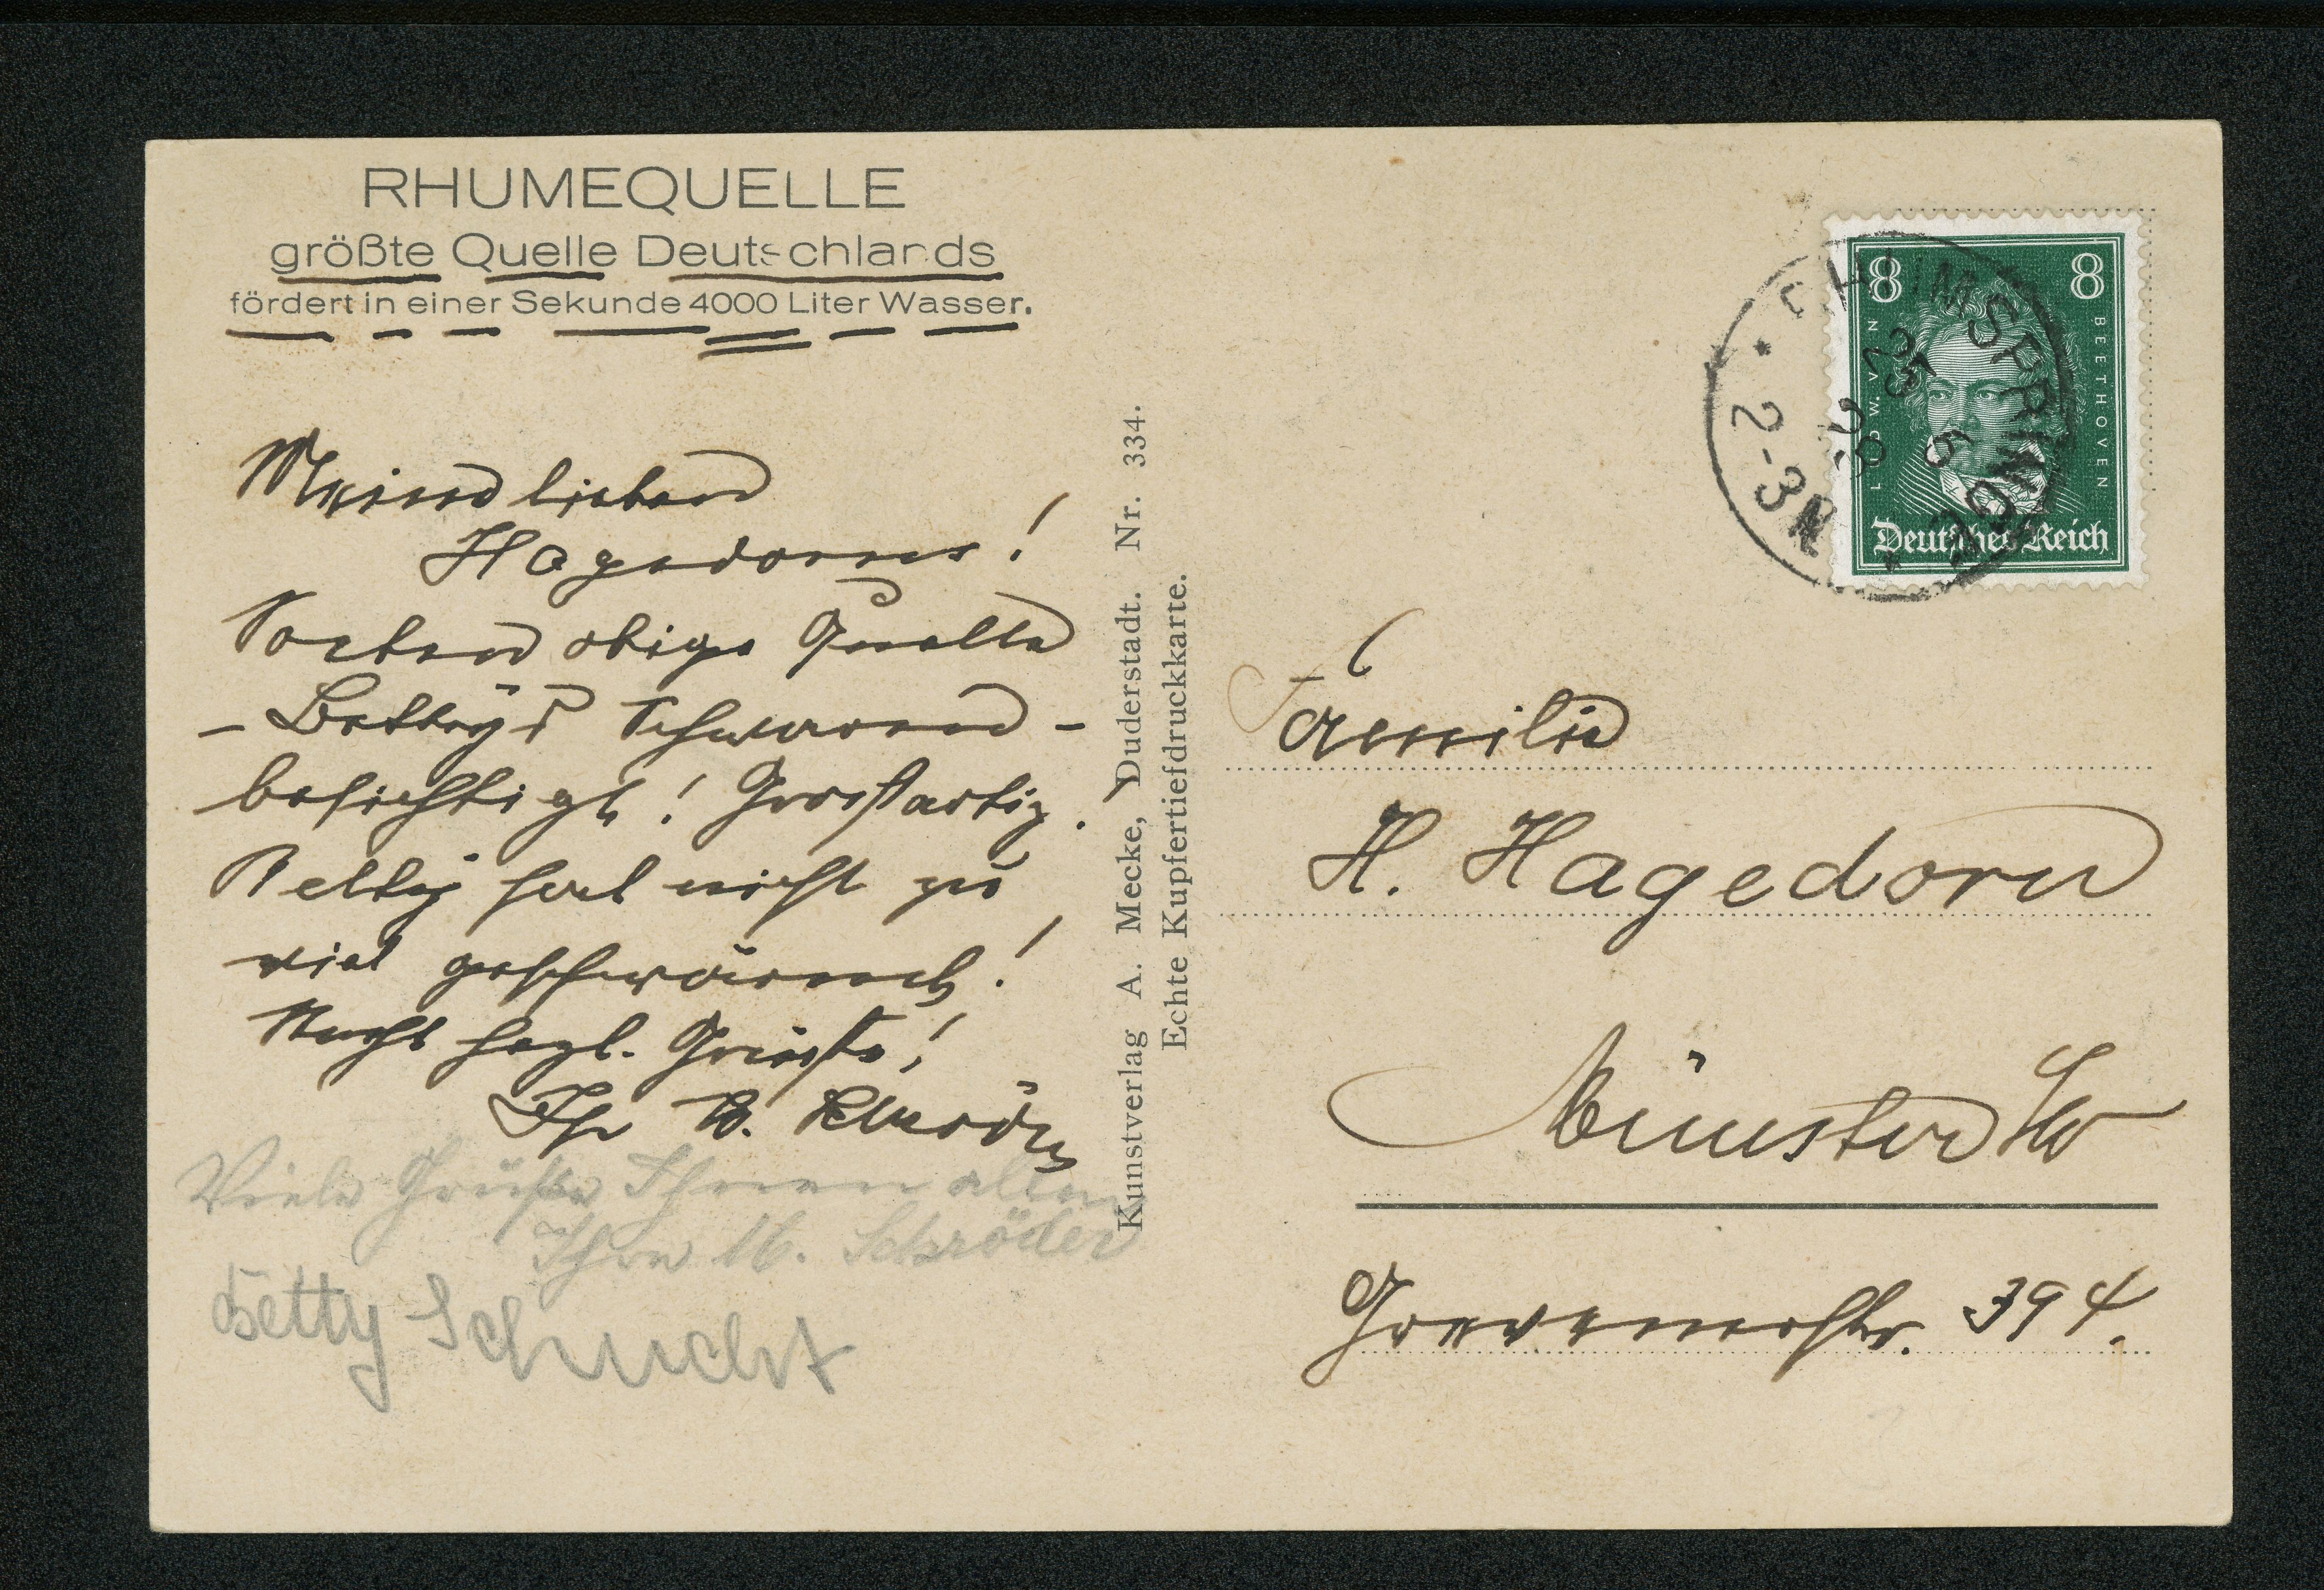 RHUMEQUELLE
größte Quelle Deutschlands
fördert in einer Sekunde 4000 Liter Wasser.
Meine lieben
Hagedorns!
Soeben obige Quelle
- Betty's Schwarm -
besichtigt! Grossartig!
Betty hat nicht zu
viel geschwärmt!
Recht herzl. Grüsse!
Ihr W. Schröder
Viele Grüße Ihnen allen
Ihre M. Schröder
Betty Schucht
Kunstverlag A. Mecke, Duderstadt. Nr. 334.
Echte Kupfertiefdruckkarte.
RHUMSPRINGE
25 5 28
2-3N
8 8
LUDW. VAN BEETHOVEN
Deutsches Reich
Familie
H. Hagedorn
Münster i/W
Grevenerstr. 394.